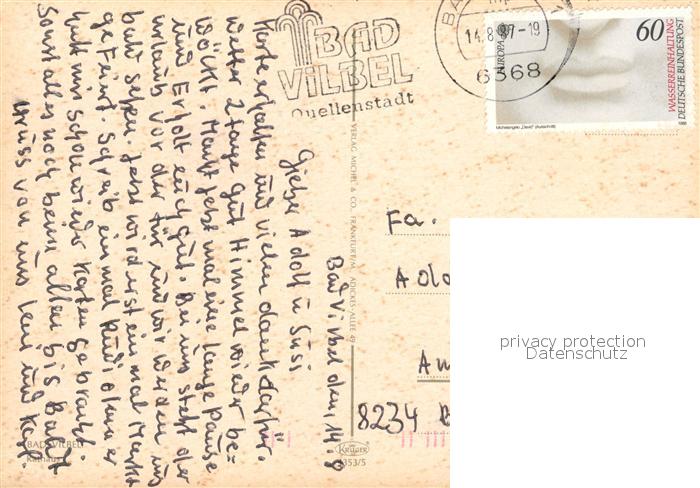 BAD VILBEL
Quellenstadt
BA
14.8.87-19
6368
EUROPA
60
WASSERREINHALTUNG
DEUTSCHE BUNDESPOST
Michelangelo „David“ (Ausschnitt)
Bad Vilbel den, 14.8
Lieber Adolf u Susi
Karte erhalten und vielen dank dafür.
weter 2 tage gut Himmel wieder be=
wölkt. Macht jetzt mal eine lange Pause
und Erholt euch gut. Bei uns steht der
urlaub vor der tür und wir werden uns
bald sehen. Jetzt wird erst ein mal Markt
gefeiert. Schreib ein mal Rudi ohne er
hatt mir schon wieder Karten gebracht
Sonst alles noch beim alten bis Bald
Gruss von uns und
VERLAG MICHEL & CO., FRANKFURT/M., ADICKES-ALLEE
Fa.
Adol
Am
8234
privacy protection
Datenschutz
BAD VILBEL
Rathaus
KRÜGER
353/5